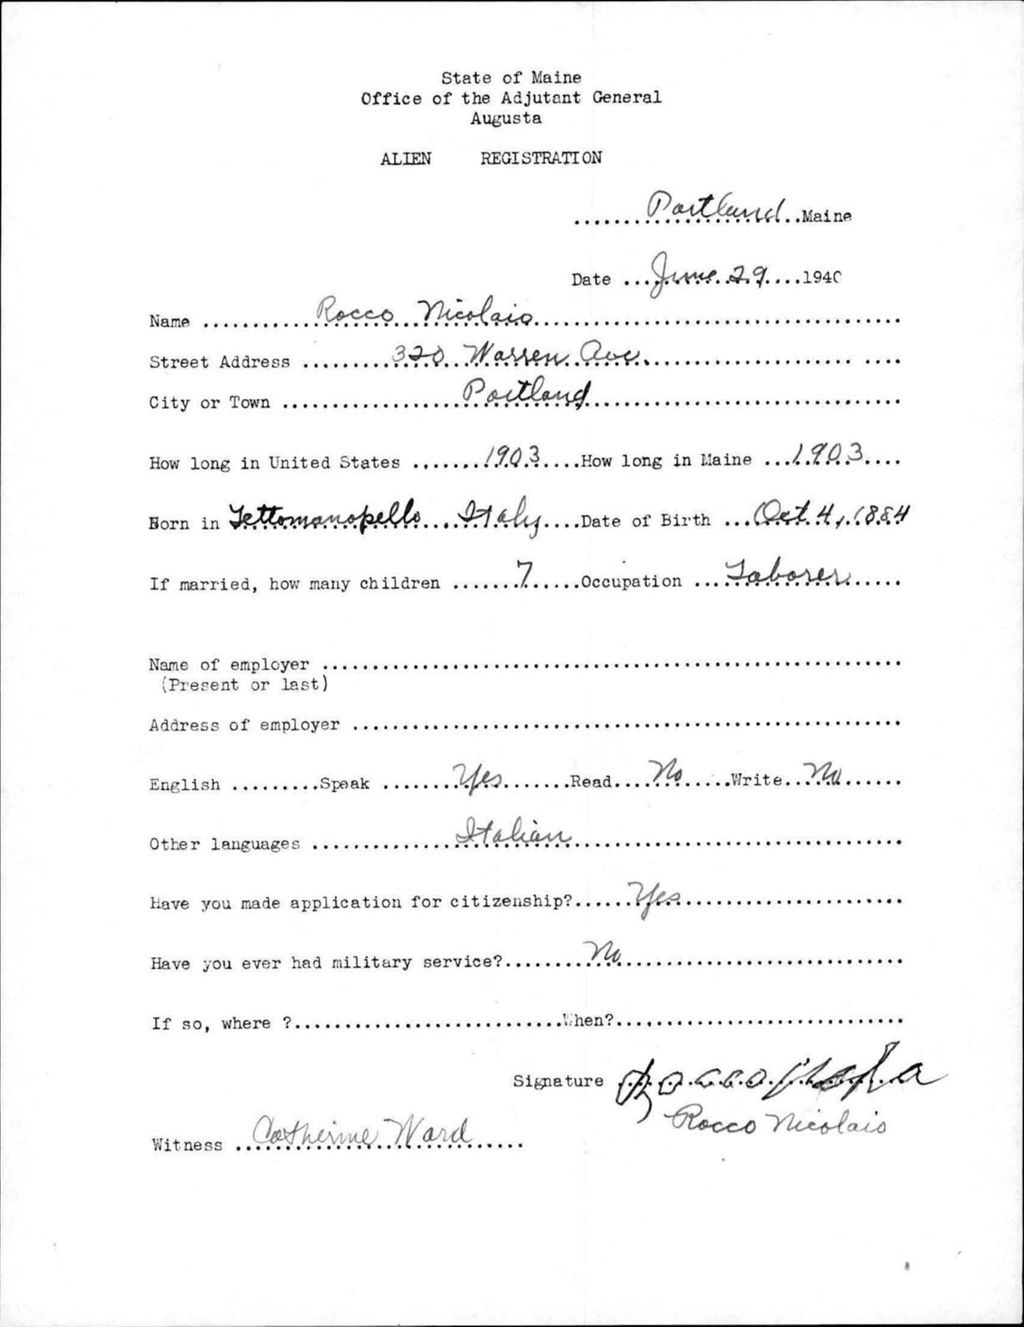 State of Maine
Office of the Adjutant General
Augusta
ALIEN REGISTRATION
.......Portland..Maine
Date ...June 29....1940
Name ............Rocco Nicolaio....................................
Street Address .........320 Warren Ave............................ ....
City or Town ..................Portland....................................
How long in United States .......1903....How long in Maine ...1903....
Born in Lettomanopello....Italy....Date of Birth ...Oct. 4, 1884
If married, how many children .......7......Occupation ...Laborer......
Name of employer ..........................................................
(Present or last)
Address of employer .......................................................
English .........Speak ........Yes.......Read....No.....Write..No......
Other languages ..............Italian.................................
Have you made application for citizenship?......Yes......................
Have you ever had military service?........No............................
If so, where ?...........................When?.............................
Signature Rocco
Rocco Nicolaio
Witness ..Catherine Ward.....